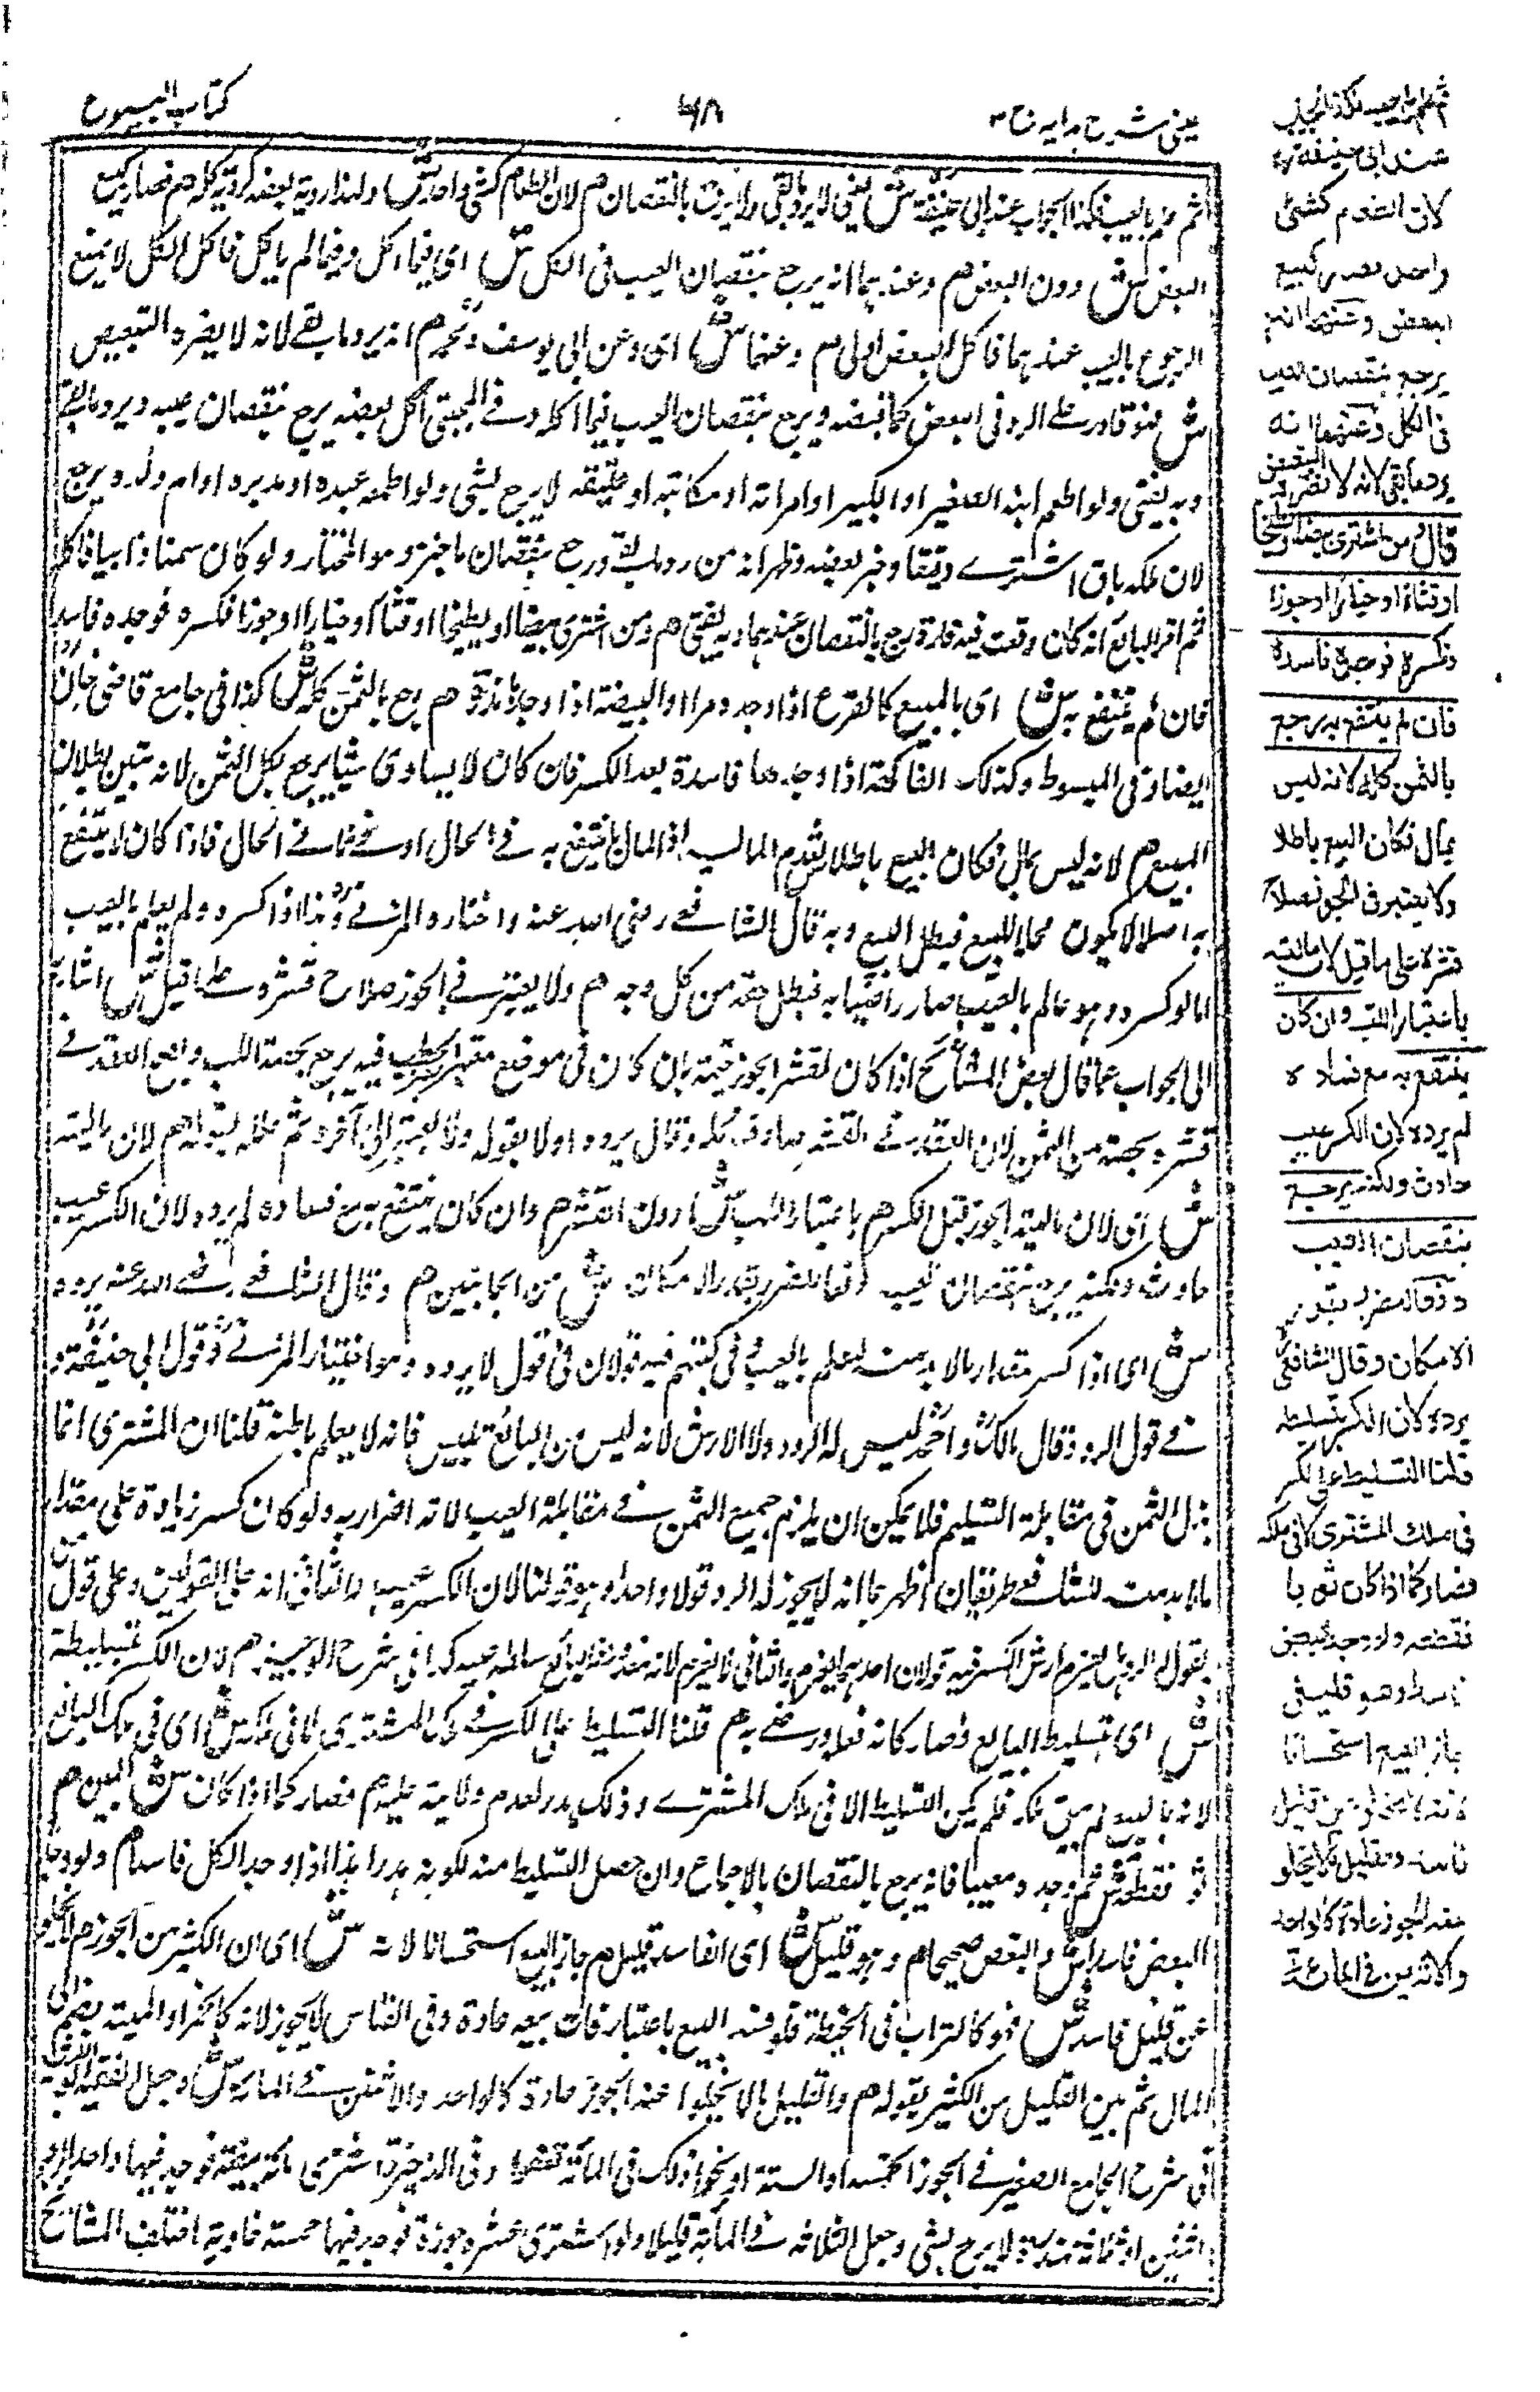 عينى شرح هدايه ج ٣
٦٨
كتاب البيوع
ثم علم بالعيب فكذا الجواب عند ابى حنيفة ش يعنى لا يرد ما بقى ولا يرجع بالنقصان م لان الطعام كشئ واحد ش ولهذا رؤية بعضه كرؤية كله م فصار كبيع
البعض ش دون البعض م وعندهما انه يرجع بنقصان العيب فى الكل ش اى فيما اكل وفيما لم ياكل فاكل الكل لا يمنع
الرجوع بالعيب عندهما فاكل البعض اولى م وعنهما ش اى وعن ابى يوسف ومحمد م انه يرد ما بقے لانه لا يضره التبعيض
ش فهو قادر على الرد فى البعض كما قبضه ويرجع بنقصان العيب فيما اكله وفے المجتبى اكل بعضه يرجع بنقصان عيبه ويرد ما بقے
وبه يفتى ولو اطعم ابنه الصغير او الكبير او امراته او مكاتبه او ضيفه لا يرجع بشئ ولو اطعمه عبده او مدبره او ام ولده يرجع
لان ملكه باق اشترے دقيقا وخبز بعضه وظهر انه مر رد ما بقے ورجع بنقصان ما خبز وهو المختار ولو كان سمنا ذائبا فاكله
ثم اقر البائع انه كان وقعت فيه فارة رجع بالنقصان عندهما وبه يفتى م ومن اشترى بيضا او بطيخا او قثاء او خيارا او جوزا فكسره فوجده فاسدا
فان لم ينتفع به ش اى بالمبيع كالقرع اذا وجده مرا او البيضة اذا وجدها مذرة م رجع بالثمن كله ش كذا فى جامع قاضى خان
ايضا وفى المبسوط وكذلك الفاكهة اذا وجدها فاسدة بعد الكسر فان كان لا يساوى شيئا يرجع بكل الثمن لانه تبين بطلان
البيع م لانه ليس بمال فكان البيع باطلا ش لعدم المالية اذ المال ما ينتفع به فے الحال او فے ثانى الحال فاذا كان لا ينتفع
به اصلا لا يكون محلا للبيع فيبطل البيع وبه قال الشافعے رضى الله عنه واختاره المزنے وهذا اذا كسره ولم يعلم بالعيب
اما لو كسره وهو عالم بالعيب صار راضيا به فبطل حقه من كل وجه م ولا يعتبر فے الجوز صلاح قشره على ما قيل ش اشارة
الى الجواب عما قال بعض المشائخ اذا كان لقشر الجوز قيمة بان كان فى موضع يعز الحطب فيه يرجع بحصة اللب ويصح العقد فے
قشره بحصته من الثمن لان العقد فے القشر صادف محله وقال يرده اولا بقوله ولا يعتبر الى آخره ثم علله بقوله م لان ماليته
ش اى لان مالية الجوز قبل الكسر م باعتبار اللب ش دون القشر م وان كان ينتفع به مع فساده لم يرده لان الكسر عيب
حادث ولكنه يرجع بنقصان العيب دفعا للضرر بقدر الامكان ش من الجانبين م وقال الشافعے رضے الله عنه يرده
ش اى اذا كسر مقدار ما لا بد منه ليعلم بالعيب وفى كتبهم فيه قولان فى قول لا يرده وهو اختيار المزنے وقول ابى حنيفة و
فے قول الرد وقال مالك واحمد ليس له الرد ولا الارش لانه ليس من البائع تدليس فانه لا يعلم باطنه قلنا ان المشترى انما
بذل الثمن فى مقابلة التسليم فلا يمكن ان يلزم جميع الثمن فے مقابلة العيب لانه اضرار به ولو كان كسر زيادة على مقدار
ما لا بد منه للشافعے طريقان اظهرهما انه لا يجوز له الرد قولا واحدا وهو قولنا لان الكسر عيب والثانى انه على القولين وعلى قول من
يقول له الرد هل يغرم ارش الكسر فيه قولان احدهما يغرم والثانى لا يغرم لانه معذور البائع سلطه عليه كذا فى شرح الوجيز م لان الكسر بتسليطه
ش اى بتسليط البائع فصار كانه فعله ورضے به م قلنا التسليط على الكسر فے ملك المشترى لا فى ملكه ش اى فى ملك البائع
لانه بالبيع لم يبق ملكه فلم يكن التسليط الا فى ملك المشترے وذلك هدر لعدم ولايته عليه م فصار كما اذا كان ش المبيع م
ثوبا فقطعه ش ثم وجده معيبا فانه يرجع بالنقصان بالاجماع وان حصل التسليط منه لكونه هدرا هذا اذا وجد الكل فاسدا م ولو وجد
البعض فاسدا ش والبعض صحيحا م وهو قليل ش اى الفاسد قليل م جاز البيع استحسانا لانه ش اى ان الكثير من الجوز م لا يخلو
عن قليل فاسد ش فهو كالتراب فى الحنطة فلو فسد البيع باعتباره فات بيعه عادة وفى القياس لا يجوز لانه كالخمر او الميتة يضم الى
المال ثم بين القليل من الكثير بقوله م والقليل ما لا يخلوا عنه الجوز عادة كالواحد والاثنين فے المائة ش وجعل الفقيه ابو الليث
فى شرح الجامع الصغير فے الجوز الخمسة او الستة او نحو ذلك فى المائة عفوا وفى الذخيرة اشترى مائة بيضة فوجد فيها واحدا او
اثنين او ثلاثة مذرة لا يرجع بشئ وجعل الثلاثة فے المائة قليلا ولو اشترى عشر جوزة فوجد فيها خمسة خاوية اختلف المشائخ
ثم علم بالعيب فكذا الجواب
عند ابى حنيفة رح
لان الطعام كشئ
واحد فصار كبيع
البعض وعندهما انه
يرجع بنقصان العيب
فى الكل وعنهما انه
يرد ما بقى لانه لا يضره التبعيض
قال ومن اشترى بيضا او بطيخا
او قثاء او خيارا او جوزا
فكسره فوجده فاسدا
فان لم ينتفع به يرجع
بالثمن كله لانه ليس
بمال فكان البيع باطلا
ولا يعتبر فى الجوز صلاح
قشره على ما قيل لان ماليته
باعتبار اللب وان كان
ينتفع به مع فساده
لم يرده لان الكسر عيب
حادث ولكنه يرجع
بنقصان العيب
دفعا للضرر بقدر
الامكان وقال الشافعى
يرده لان الكسر بتسليطه
قلنا التسليط على الكسر
فى ملك المشترى لا فى ملكه
فصار كما اذا كان ثوبا
فقطعه ولو وجد البعض
فاسدا وهو قليل
جاز البيع استحسانا
لانه لا يخلو عن قليل
فاسد والقليل ما لا يخلو
عنه الجوز عادة كالواحد
والاثنين فى المائة